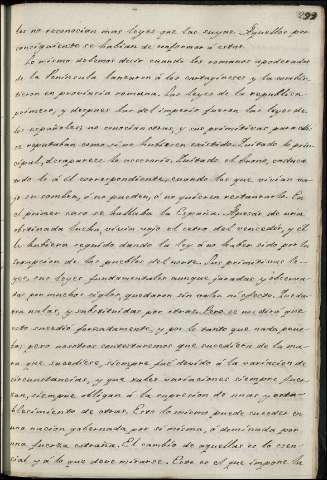 299
tos no reconocian mas leyes que las suyas. Aquellos por
consiguiente se habian de conformar á estas.
Lo mismo debemos decir cuando los romanos apoderados
de la Península lanzaron á los cartagineses y la convir-
tieron en provincia romana. Las leyes de la república
primero, y despues las del imperio fueron las leyes de
los españoles; no conocian otras, y sus primitivas para ellos
se reputaban como si no hubieran existido. Quitado lo prin-
cipal, desaparece lo accesorio. Quitado el buen,
rado le á él correspondiente, cuando los que vivian ba-
jo su sombra, ó no pueden, ó no quieren restaurarlo. En
el primer caso se hallaba la España. Apesar de una
obstinada lucha, vivia bajo el cetro del vencedor, y él
le hubiera seguido dando la ley á no haber sido por la
irrupcion de los pueblos del norte. Sus primitivas le-
yes, sus leyes fundamentales aunque juradas y observa-
das por muchos siglos, quedaron sin valor ni efecto. Queda-
ron nulas, y substituidas por otras. Pero se nos dirá que
esto sucedió forzadamente, y por lo tanto que nada prue-
ba; pero nosotros contestaremos que sucediera de la ma-
nera que sucediere, siempre fué debido á la variacion de
circunstancias, y que haber variaciones siempre fuer-
zan, siempre obligan á la supresion de unas y esta-
blecimiento de otras. Eso lo mismo puede suceder en
una nacion gobernada por si misma, ó dominada por
una fuerza estraña. El cambio de aquellas es lo esen-
cial y á lo que debe mirarse. Ese es el que impone la